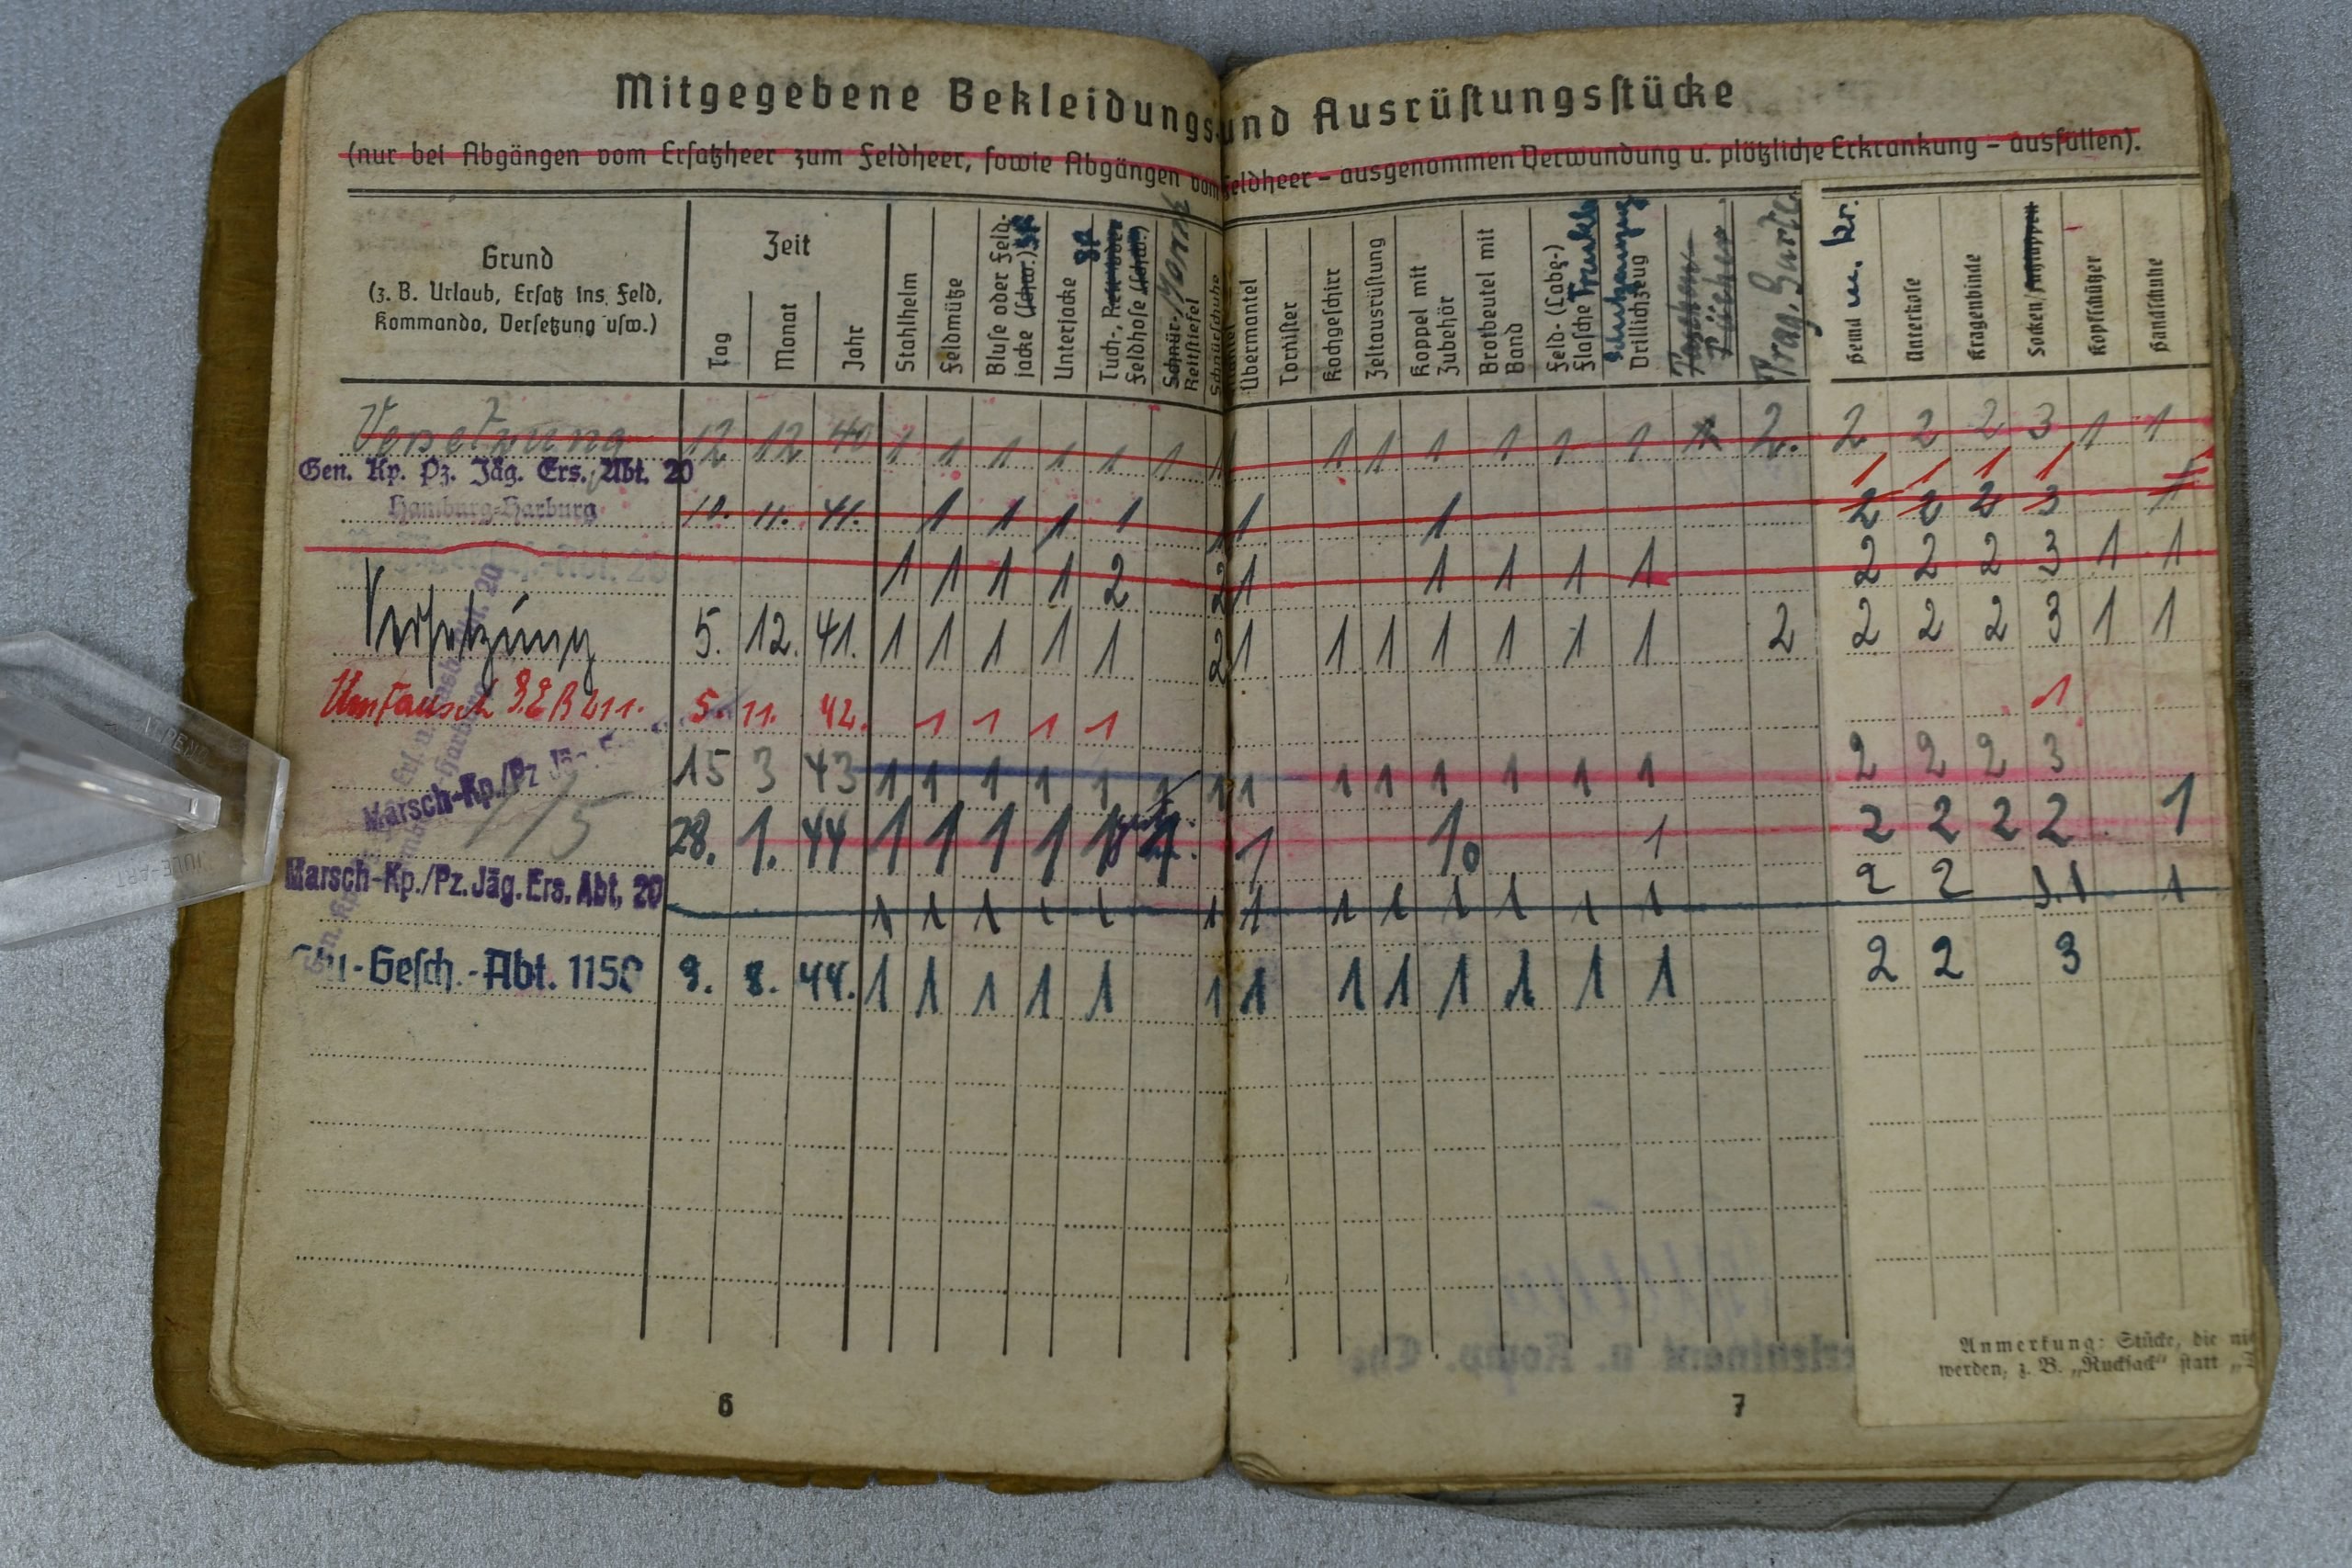 Mitgegebene Bekleidungs- und Ausrüstungsstücke
(nur bei Abgängen vom Ersatzheer zum Feldheer, sowie Abgängen vom Feldheer – ausgenommen Verwundung u. plötzliche Erkrankung – ausfüllen).
Grund
(z. B. Urlaub, Ersatz ins Feld,
Kommando, Versetzung usw.)
Zeit
Tag
Monat
Jahr
Stahlhelm
Feldmütze
Bluse oder Feld-
jacke (schw.)
Unterjacke
Tuch-,
Feldhose (schw.)
Schnür-,
Reitstiefel
Schnürschuhe
Übermantel
Tornister
Kochgeschirr
Zeltausrüstung
Koppel mit
Zubehör
Brotbeutel mit
Band
Feld- (Labe-)
Flasche
Drillichzeug
Taschen-
Tücher
Trag. Gurte
Hemd m. Kr.
Unterhose
Kragenbinde
Socken/
Kopfschützer
Handschuhe
Versetzung 12 12 40 1 1 1 1 1 1 1 1 1 1 1 1 1 2. 2 2 2 3 1 1
1 1 1 1
Gen. Kp. Pz. Jäg. Ers. Abt. 20
Hamburg-Harburg 10. 11. 41. 1 1 1 1 1 1 1 2 2 2 3 1
1 1 1 1 2 2 1 1 1 1 1 2 2 2 3 1 1
Versetzung 5. 12. 41. 1 1 1 1 1 2 1 1 1 1 1 1 1 2 2 2 2 3 1 1
Umtausch 5. 11. 42. 1 1 1 1 1
Marsch-Kp./Pz Jäg. 15 3 43 1 1 1 1 1 1 1 1 1 1 1 1 1 1 2 2 2 3
28. 1. 44 1 1 1 1 1 1 1 1 1 2 2 2 2 1
Marsch-Kp./Pz. Jäg. Ers. Abt. 20 1 1 1 1 1 1 1 1 1 1 1 1 1 2 2 1
-Gesch.-Abt. 1150 9. 8. 44. 1 1 1 1 1 1 1 1 1 1 1 1 1 2 2 3
Anmerkung: Stücke, die
werden, z. B. „Rucksack“ statt
6
7